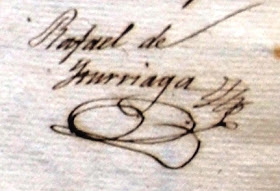 Rafael de
Yturriaga